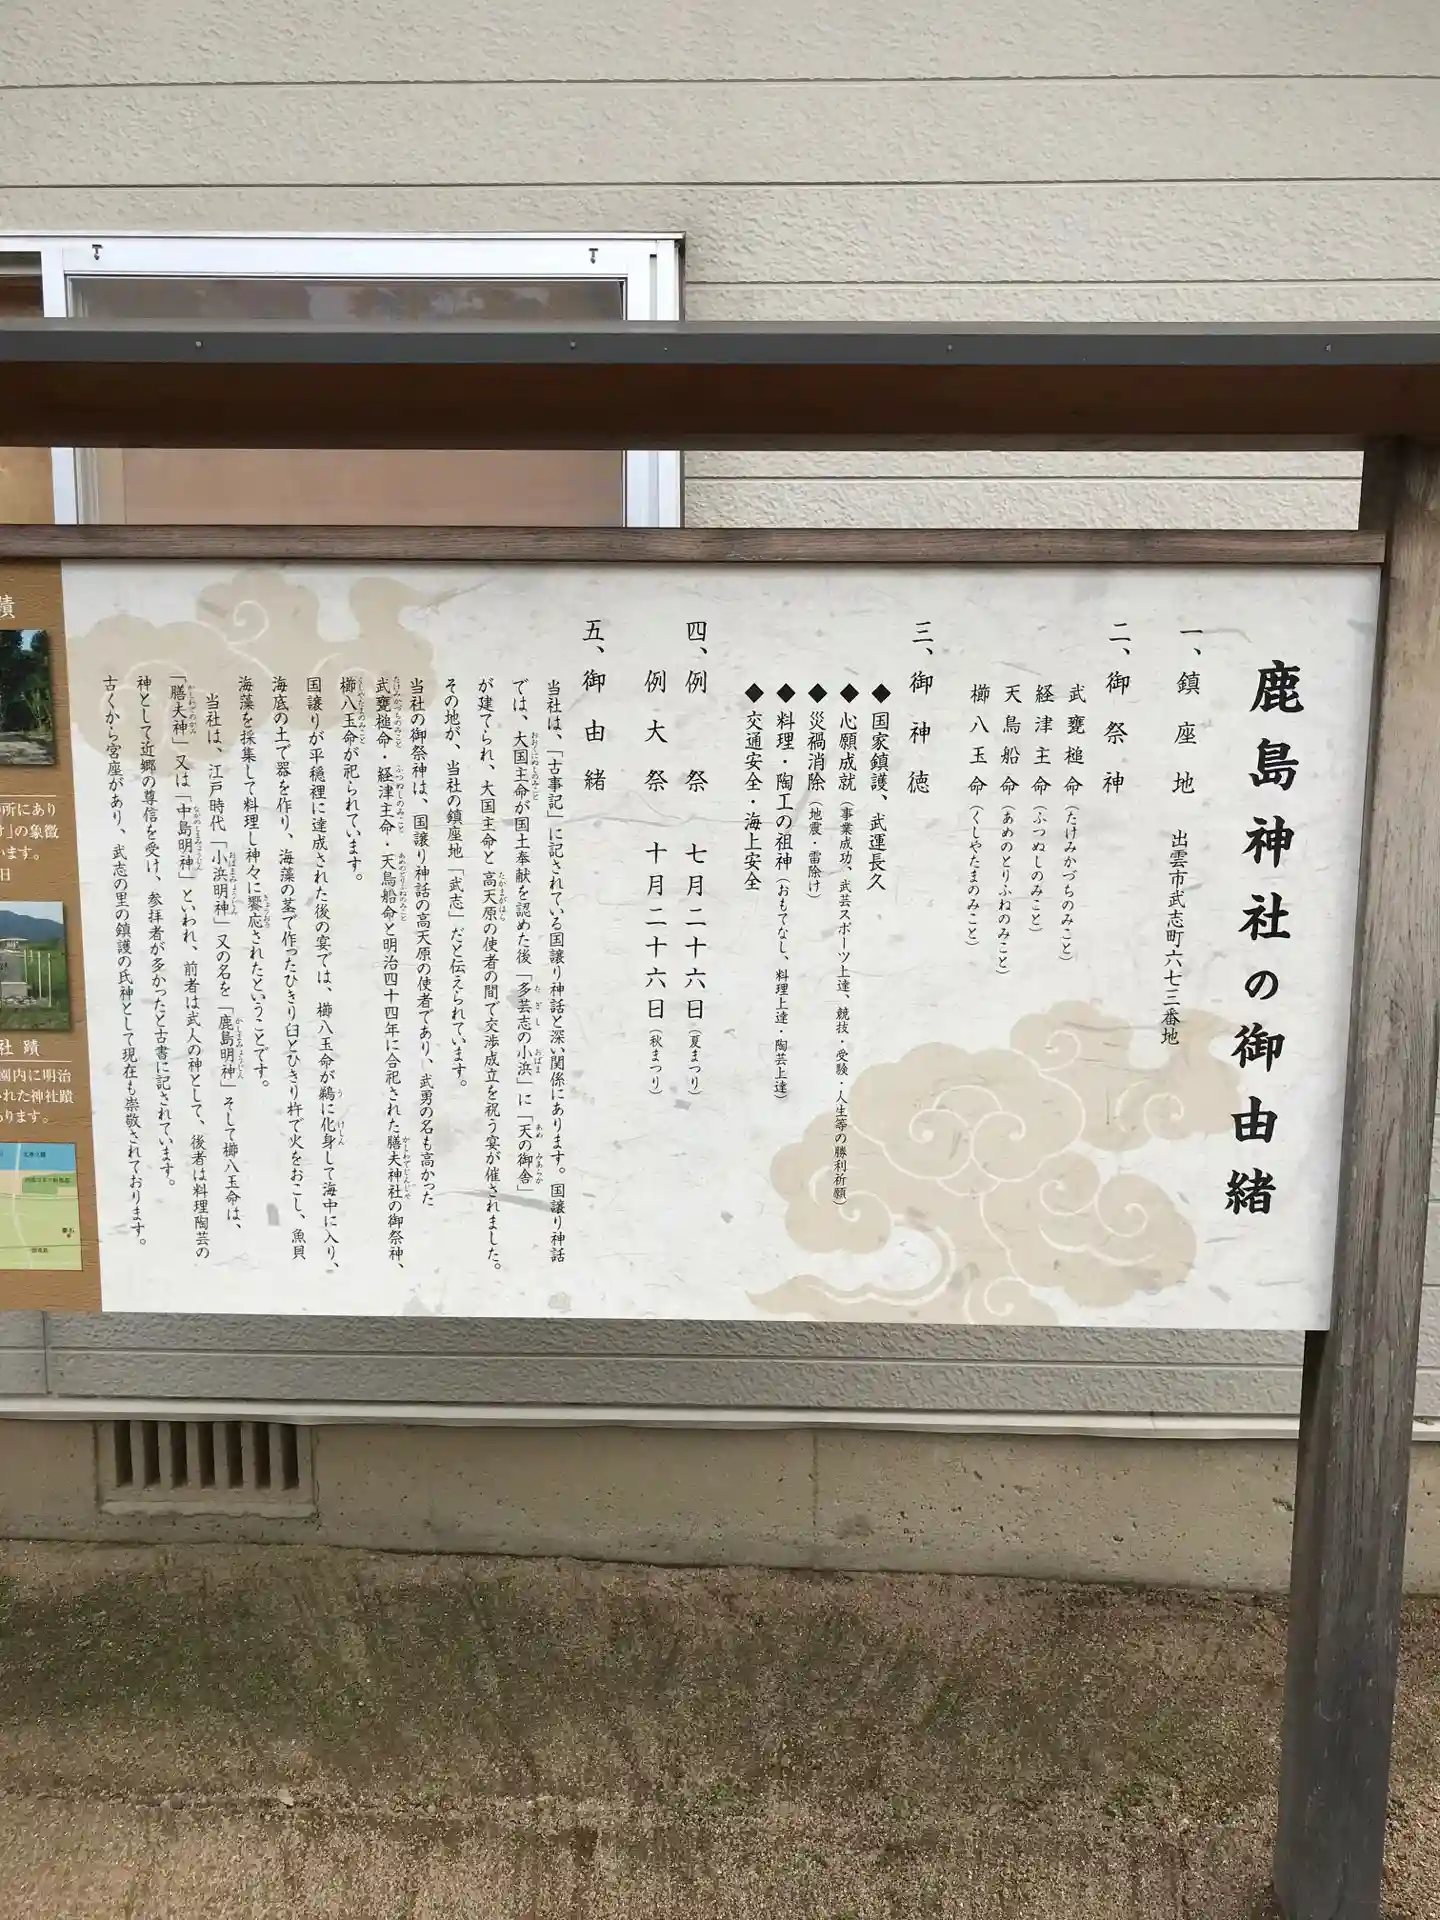 鹿島神社の御由緒
一、鎮座地 出雲市武志町六七三番地
二、御祭神
武甕槌命（たけみかづちのみこと）
経津主命（ふつぬしのみこと）
天鳥船命（あめのとりふねのみこと）
櫛八玉命（くしやたまのみこと）
三、御神徳
◆国家鎮護、武運長久
◆心願成就（事業成功、武芸スポーツ上達、競技・受験・人生等の勝利祈願）
◆災禍消除（地震・雷除け）
◆料理・陶工の祖神（おもてなし、料理上達・陶芸上達）
◆交通安全・海上安全
四、例祭 七月二十六日（夏まつり）
例大祭 十月二十六日（秋まつり）
五、御由緒
当社は、「古事記」に記されている国譲り神話と深い関係にあります。国譲り神話
では、大国主命が国土奉献を認めた後「多芸志の小浜」に「天の御舎」
が建てられ、大国主命と高天原の使者の間で交渉成立を祝う宴が催されました。
その地が、当社の鎮座地「武志」だと伝えられています。
当社の御祭神は、国譲り神話の高天原の使者であり、武勇の名も高かった
武甕槌命・経津主命・天鳥船命と明治四十四年に合祀された膳夫神社の御祭神、
櫛八玉命が祀られています。
国譲りが平穏裡に達成された後の宴では、櫛八玉命が鵜に化身して海中に入り、
海底の土で器を作り、海藻の茎で作ったひきり臼とひきり杵で火をおこし、魚貝
海藻を採集して料理し神々に饗応されたということです。
当社は、江戸時代「小浜明神」又の名を「鹿島明神」そして櫛八玉命は、
「膳夫神」又は「中島明神」といわれ、前者は武人の神として、後者は料理陶芸の
神として近郷の尊信を受け、参拝者が多かったと古書に記されています。
古くから宮座があり、武志の里の鎮護の氏神として現在も崇敬されております。
蹟
所にあり
」の象徴
います。
日
社蹟
園内に明治
れた神社蹟
あります。